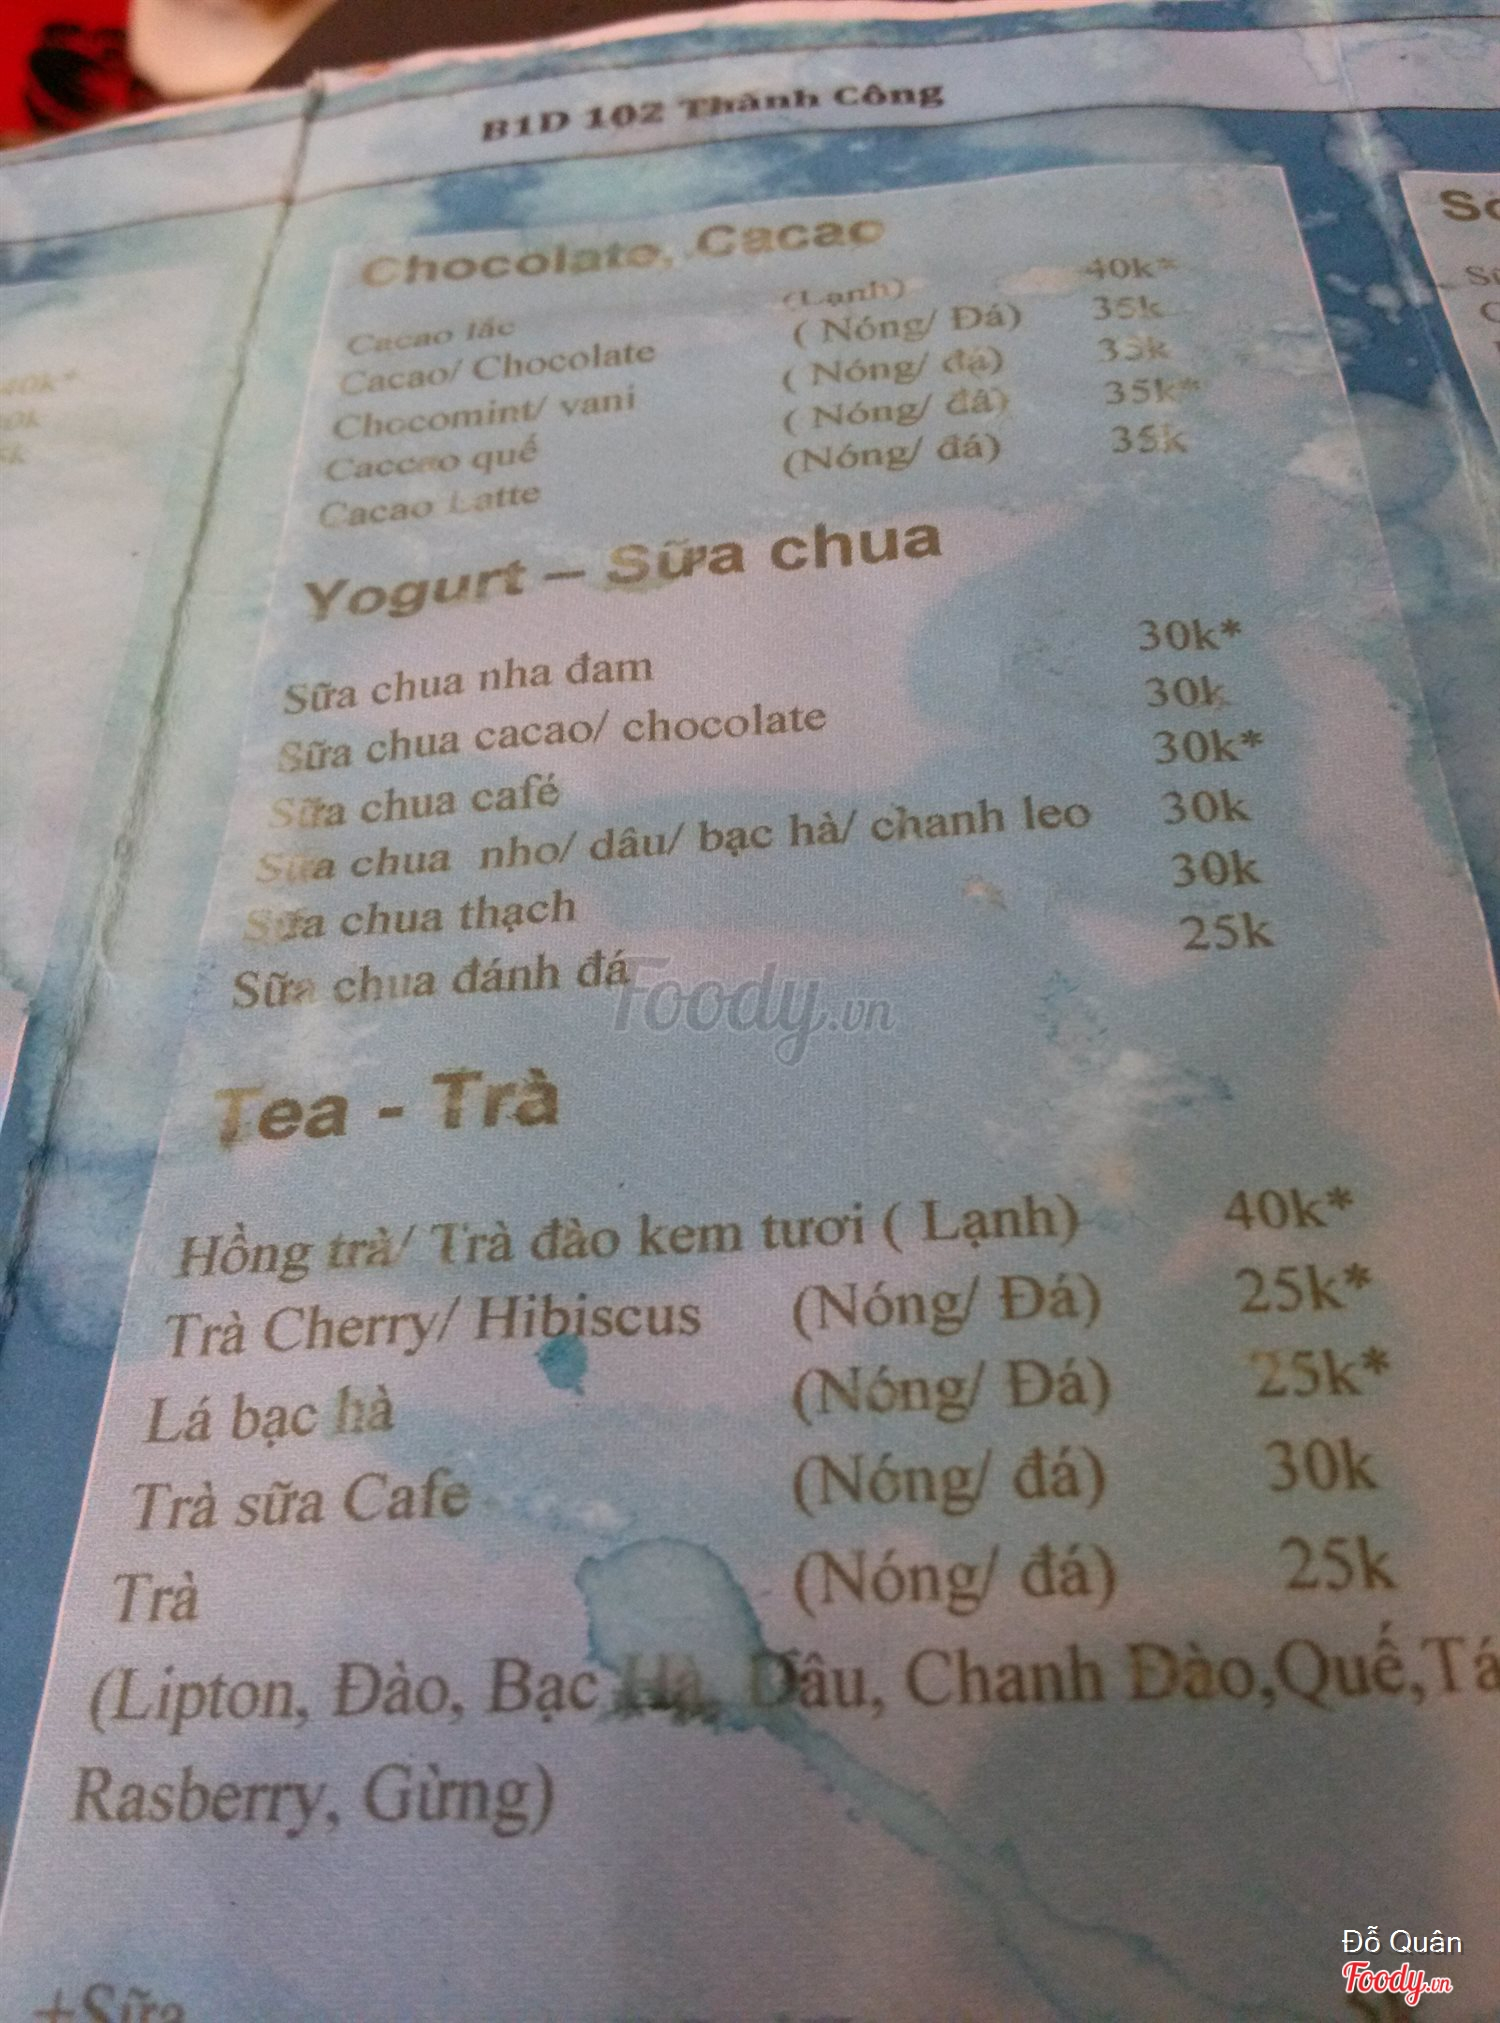 B1D 102 Thành Công
Chocolate, Cacao
Cacao lắc (Lạnh) 40k*
Cacao/ Chocolate ( Nóng/ Đá) 35k
Chocomint/ vani ( Nóng/ đá) 35k
Caccao quế ( Nóng/ đá) 35k*
Cacao Latte (Nóng/ đá) 35k
Yogurt – Sữa chua
Sữa chua nha đam 30k*
Sữa chua cacao/ chocolate 30k
Sữa chua café 30k*
Sữa chua nho/ dâu/ bạc hà/ chanh leo 30k
Sữa chua thạch 30k
Sữa chua đánh đá 25k
Foody.vn
Tea - Trà
Hồng trà/ Trà đào kem tươi ( Lạnh) 40k*
Trà Cherry/ Hibiscus (Nóng/ Đá) 25k*
Lá bạc hà (Nóng/ Đá) 25k*
Trà sữa Cafe (Nóng/ đá) 30k
Trà (Nóng/ đá) 25k
(Lipton, Đào, Bạc Hà, Dâu, Chanh Đào,Quế,Tá
Rasberry, Gừng)
+Sữa
40k*
Đỗ Quân
Foody.vn